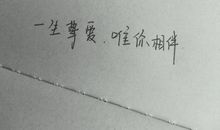 一生挚爱.唯你相伴